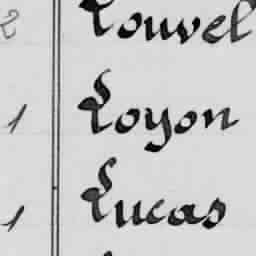 2 Louvel
1 Loyon
1 Lucas